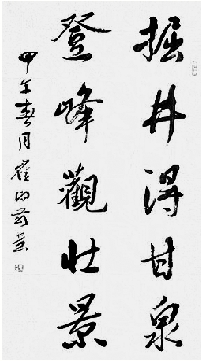 掘井得甘泉
登峰觀壯景
甲午春月